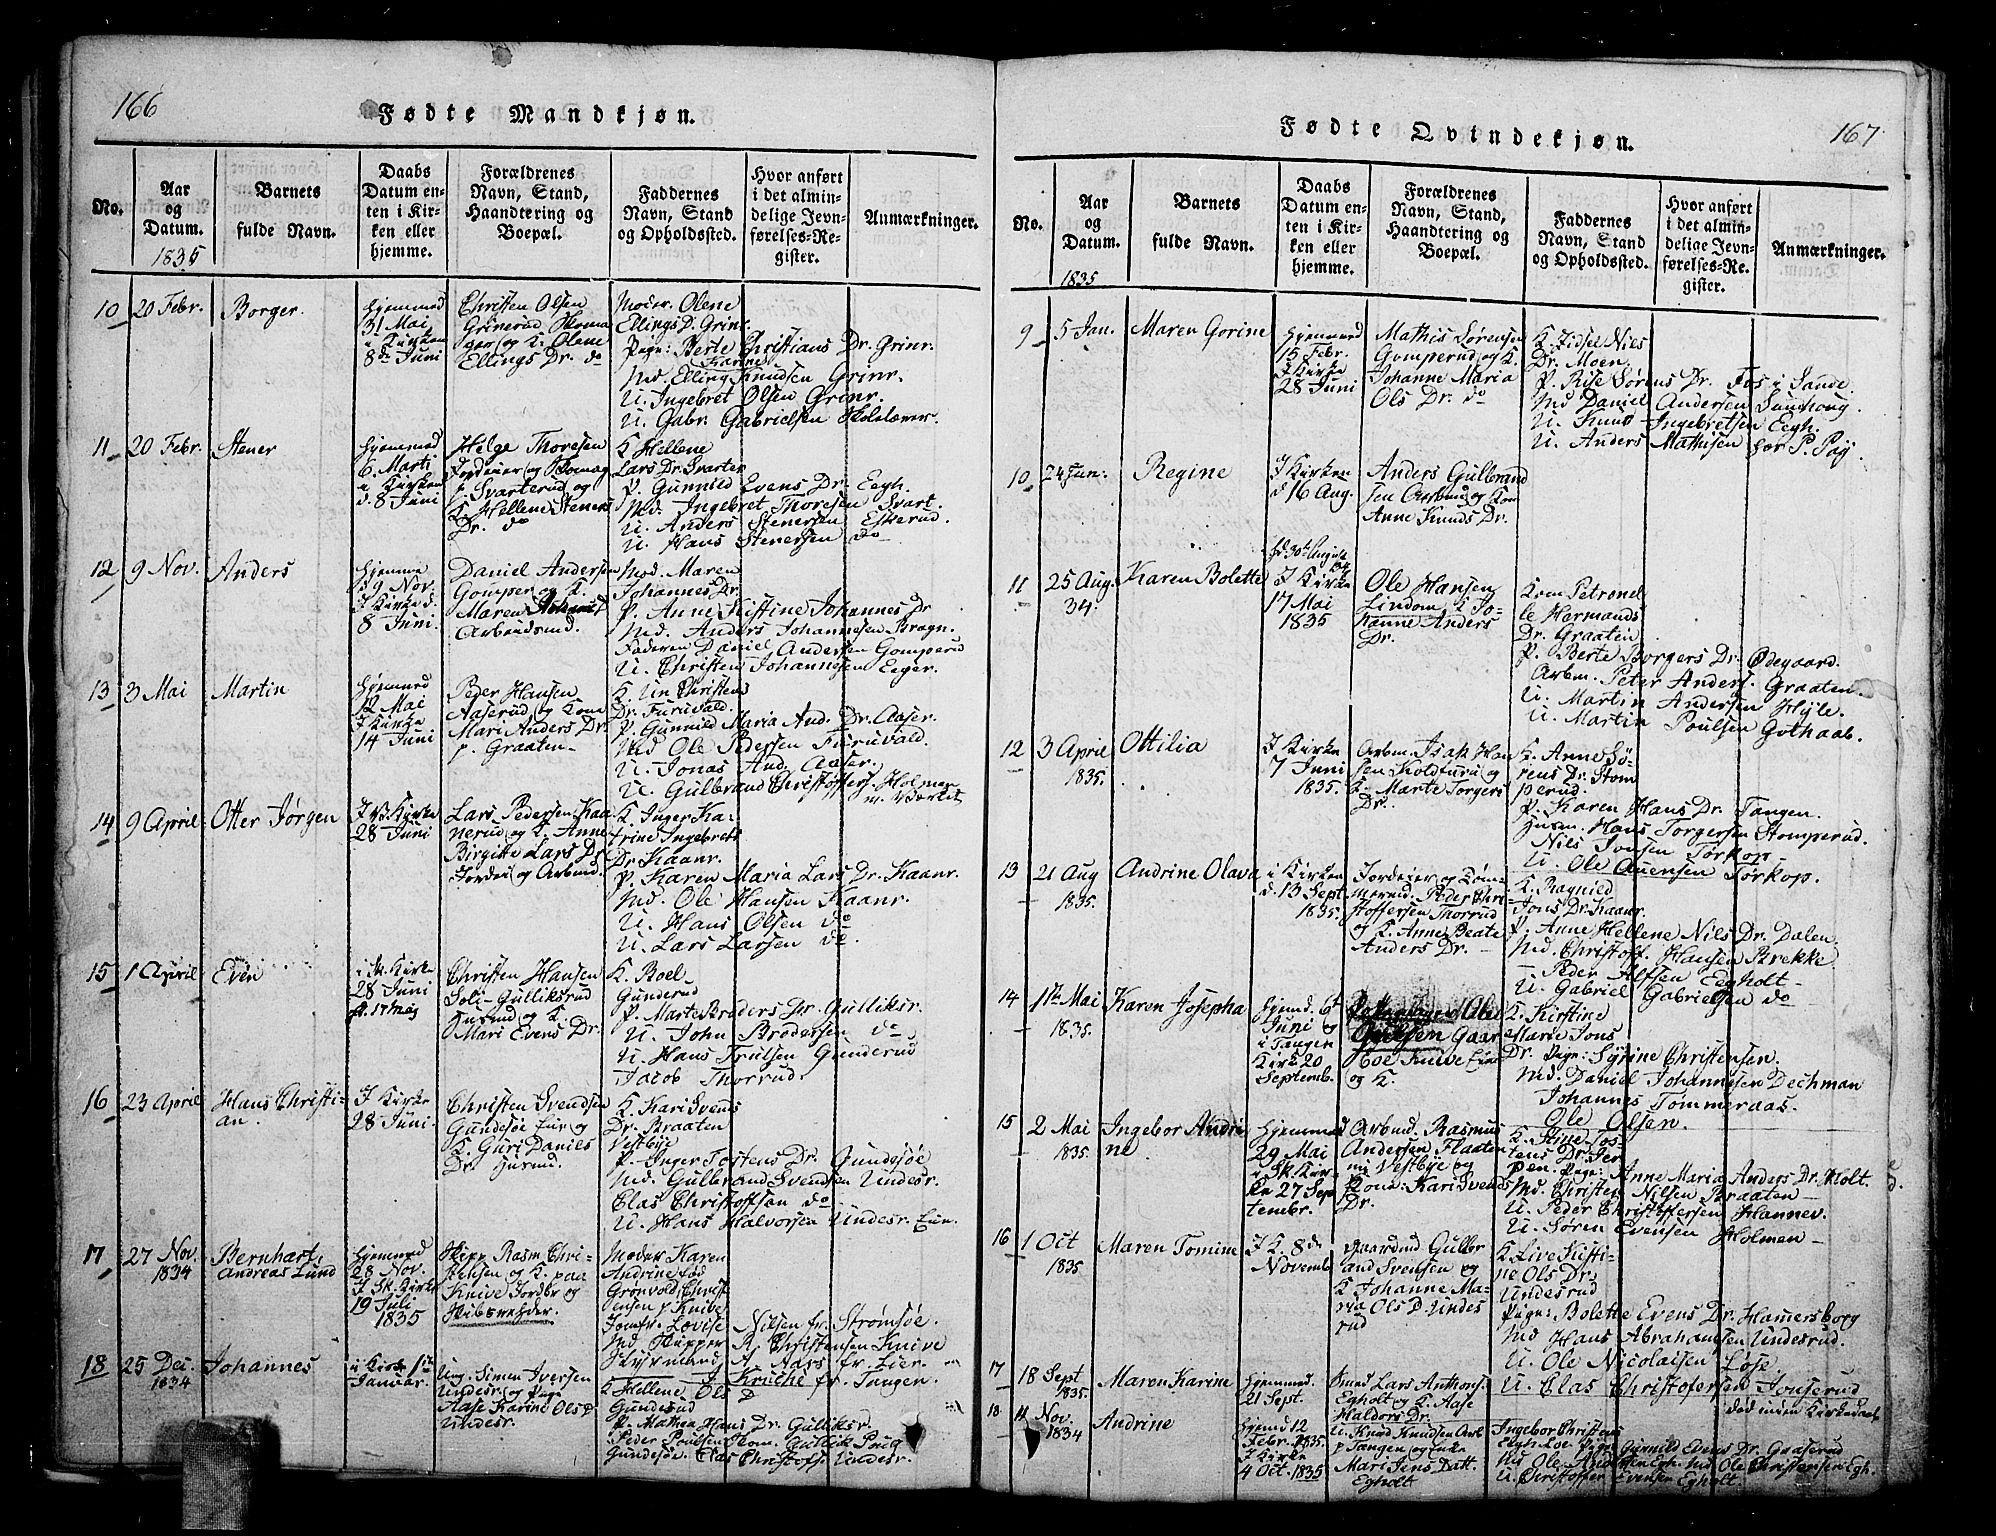 166
Fødte Mandkjøn.
No.
Aar
og
Datum.
1835
Barnets
fulde Navn.
Daabs
Datum en-
ten i Kir-
ken eller
hjemme.
Forældrenes
Navn, Stand,
Haandtering og
Boepæl.
Faddernes
Navn, Stand
og Opholdssted.
Hvor anført
i det almin-
delige Jevn-
førelses-Re-
gister.
Anmærkninger.
10
20 Febr.
Borger.
Hjemmed
31 Mai
i Kirken
8de Juni
Christen Olsen
Grinerud
og K. Olene
Ellings Dr. do
Moder. Olene
Ellings D. Grinr.
Pige: Berte Christians Dr. Grinr.
Md. Elling Knudsen Grinr.
U. Ingebret Olsen Grinr.
U. Gabr. Gabrielsen Skolelærer.
11
20 Febr.
Stener
Hjemmed
6. Marti
i Kirken
d. 8 Juni
Helge Thoresen
Jordeier og
p. Svarterud og
K. Hellene Steners
Dr. do
K Hellene
Lars Dr. Svarter
P. Gunnild Evens Dr. Eegh.
Md. Ingebret Thoresen Svart.
U. Anders Stenersen Eskerud.
U. Hans Stenersen do
12
9 Nov.
Anders
Hjemme
19 Nov.
I Kirke d.
8 Juni.
Daniel Andersen
Gomper og K.
Maren
Arbeudsmd.
Md. Maren
Johannes Dr.
P. Anne Kistine Johannes Dr
Md. Anders Johannesen Bragn.
Faderen Daniel Andersen Gomperud
U. Christen Johannesen Eeger.
13
3 Mai
Martin
Hjemmed
12 Mai
I Kirke
14 Juni
Peder Hansen
Aaserud og Kone
Mari Anders Dr.
p. Graaten-
K. Un Christens
Dr. Furuvald.
P. Gunnild Maria And. Dr. Aaser.
Md Ole Pedersen Furuvald.
U. Jonas And. Aaser.
U. Gulbrand Christoffers. Holmen
v. Værket
14
9 April
Otter Jørgen
I Kirke
28 Juni
Lars Pedersen Kaa
nerud og K. Anne
Birgitte Lars Dr
Jordei og Arbmd.
K Inger Ka-
trine Ingebrets
Dr. Kaanr.
P. Karen Maria Lars Dr. Kaanr.
Md. Ole Hansen Kaanr.
U. Hans Olsen do
U. Lars Larsen do.
15
1 April
Even
i Sk. Kirke
28 Juni
Christen Hansen
Soli-Gulliksrud
Husmd og K.
Mari Evens Dr.
K. Boel
Gunderud
P. Marte Braders Dr. Gulliksr.
U. John Bradersen do
U. Hans Trulsen Gunderud
Jacob Thorrud.
16
23 April
Hans Christi-
an.
I Kirke
28 Juni.
Christen Svendsen
Gundesøe Eier og
K. Guri Daniels
Dr. Husmd.
K. Kari Svends
Dr. Braaten
Vestbye
P. Inger Tostens Dr. Gundesøe
Md. Gulbrand Svendsen Undesr.
Clas Christoffsen do
U. Hans Halvorsen Undesr. Eier.
17
27 Nov.
1834
Bernhart
Andreas Lund
Hjemmed
28 Nov.
I Sk. Kirke
19 Juli
1835
Skipp. Rasm Chri-
stensen og K. paa
Knive Jordbr og
Skibsreheder.
Moder Karen
Andrine fød
Grönvold, Christ
ensen p Knive
Jomfr. Lovise Nilsen fr. Strømsøe.
Md Skipper R. Christensen Knive
Styrmand A. Aars fr. Lier.
J Kruche fr. Tangen.
18
25 Dec.
1834
Johannes
i Kirke 1ste
Januar.
Ung. Simen Iversen
Undesr. og Pige
Aase Karine Ols D
Undesr.
K Hellene Ols D
Gundesud
P. Mathea Hans Dr. Gulliksr.
Peder Poulsen Kom. Gullik Poug
Gundesøe. Clas Christofs. Undesr.
167
Fødte Qvindekjøn.
No.
Aar
og
Datum.
1835
Barnets
fulde Navn.
Daabs
Datum en-
ten i Kir-
ken eller
hjemme.
Forældrenes
Navn, Stand,
Haandtering og
Boepæl.
Faddernes
Navn, Stand
og Opholdssted.
Hvor anført
i det almin-
delige Jevn-
førelses-Re-
gister.
Anmærkninger.
9
5 Jan.
Maren Gorine
Hjemmed
15 Febr.
I Kirke
28 Juni
Mathis Sørensen
Gomperud og K.
Johanne Maria
Ols Dr. do
K. Zidsel Nils
Dr. Moen
P. Rise Sørens Dr. Fos i Sande.
Md Daniel Andersen Sunhoug.
U. Knud Ingebretsen Eegh.
U. Anders Mathisen
10
24 Jan:
Regine
I Kirken
d 16 Aug.
Anders Gulbrand
sen Aarbmd og Kone
Anne Knuds Dr.
11
25 Aug.
34.
Karen Bolette
30te August
34
I Kirke
17 Mai
1835
Ole Hansen
Lindom K. Jo-
hanne Anders
Dr.
Kom Petronel
le Hermands
Dr. Graaten
P. Berte Borgers Dr. Ødegaard.
Arbm. Peter Anders. Graaten.
U. Martin Andersen Hyle.
U. Martin Poulsen Gothaab.
12
3 April
1835.
Ottilia
I Kirke
7 Juni
1835.
Arbm. Isak Han
sen Koldturu og
K. Marte Torgers
Dr.
K. Anne Sø-
rens Dr. Stom
perud.
P. Karen Hans Dr. Tangen.
Husm. Hans Torgersen Stomperud.
Nils Ivensen Torkop.
U. Ole Auensen Torkop.
13
21 Aug
1835.
Andrine Olava
i Kirken
d. 13 Sept
1835.
Jordeier og Töm-
mermd. Peder Chri-
stoffersen Thorrud
og K. Anne Beate
Anders Dr. -
K. Ragnild
Jons Dr. Kaanr.
P. Anne Hellene Nils Dr. Dalen
Md. Christoff. Hansen Brekke
U. Peder Alfsen Egholt-
U. Gabriel Gabrielsen do
14
1te Mai
1835.
Karen Josepha
Hjemd. 6t
Juni og
i Tangen
Kirk 20
Septemb.
Ole
Guelsen Gaar
Boe Knive Eier
og K.
K. Kirstine
Marie Jons
Dr. Pige: Syrine Christensen.
Md. Daniel Johannesen Dechman
Johannes Tømmeraas.
Ole Olsen.
15
2 Mai
1835.
Ingebor Andri
ne
Hjemmed
29 Mai
i Sk Kir-
ke 27 Sep
tembr.
Arbmd. Rasmus
Andersen Flaaten
Vestbye og
Kone: Kari Svends
Dr.
K. Stine Jos-
tens Dr. Jer
pen. Pige: Anne Maria Anders Dr. Holt.
Md. Christen Nilsen Braaten-
U. Peder Christoffersen Hannev.
U. Søren Evensen Holmen-
16
1 Oct
1835
Maren Tomine
I K. 8de
Novemb
Gaardmd Gulbr
and Svensen og
K Johanne Ma-
ria Ols D Undes
rud
K. Live Kisti-
ne Ols Dr.
Undesrud
Pige: Bolette Evens Dr. Hamersborg
Md Hans Abrahamsen Undesrud.
U. Ole Nicolaisen Lose.
U. Clas Christofersen Jonserud
17
18 Sept
1835.
Maren Karine
Hjemmed.
21 Sept.
Lars Anthons.
Egholt og K. Aase
Haldors Dr.
død inden Kirkedaab
18
11 Nov.
1834
Andrine
Hjemd 12
Febr. 1835.
I Kirke
4 Oct. 1835
U. Knud Knudsen Arb
p Tangen og Enke
Mari Jens Datt.
Egholt
Ingebor Christens
Egh. Pige Gunnild Evens Dr. Graserud
Md Ole Egh. Md Ole Christensen Egh.
U. Christoffer Evensen Egholt.